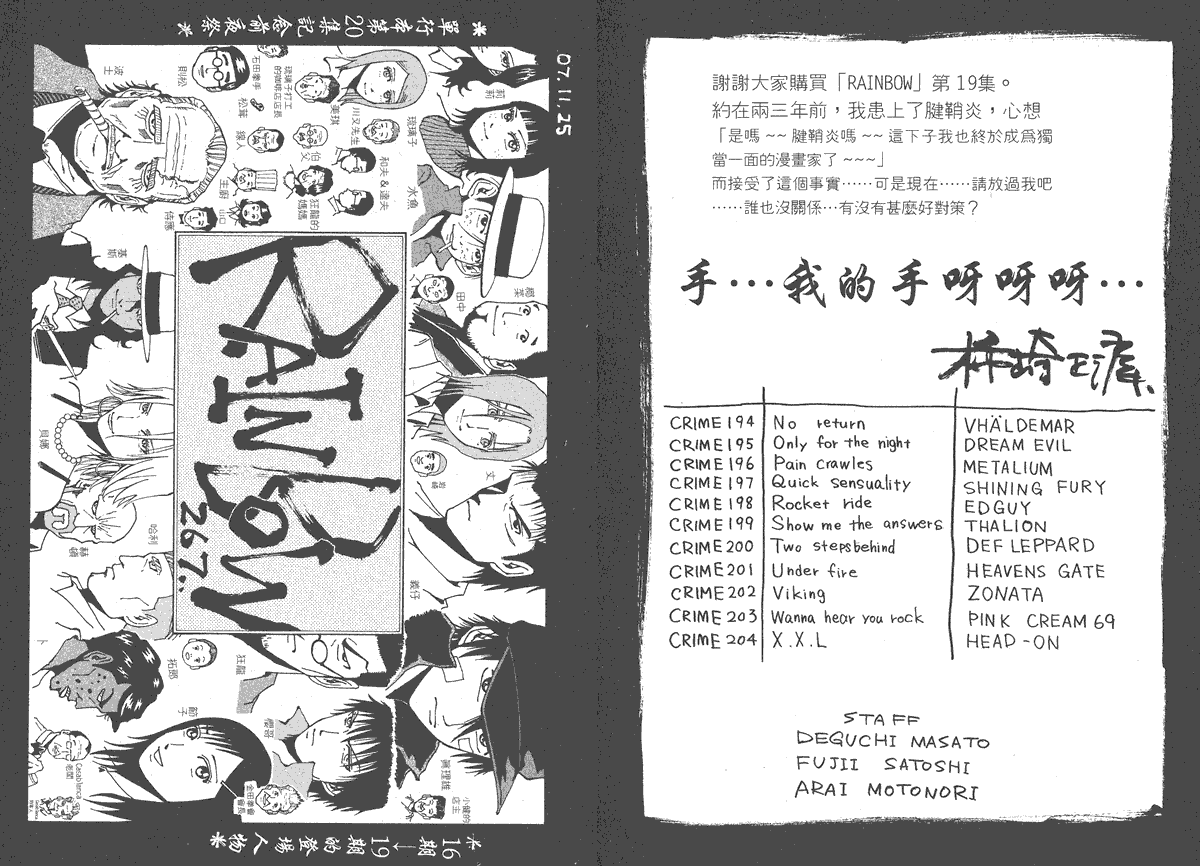 ＊單行本第20集記念前夜祭＊
07.11.25
波士
則松
石田拳手
琉璃子打工的咖啡店店長
松茸
線人
伯父
川又先生
莉莉
琉璃子
和夫&達夫
水魚
狂龍的媽媽
侍應
基斯
田中
貝娜
丈
岩崎
哈利
赫頓
義仔
拓郎
狂龍
節子
櫻哥
萬理雄
小健的店主
Casablanca老闆
金田拳會會長
RAINBOW
267..
＊16期→19期的登場人物＊
謝謝大家購買「RAINBOW」第19集。
約在兩三年前，我患上了腱鞘炎，心想
「是嗎~~腱鞘炎嗎~~這下子我也終於成爲獨
當一面的漫畫家了~~~」
而接受了這個事實……可是現在……請放過我吧
……誰也沒關係…有沒有甚麼好對策？
手…我的手呀呀呀…
柿崎正澄
CRIME 194 No return VHÄLDEMAR
CRIME 195 Only for the night DREAM EVIL
CRIME 196 Pain crawles METALIUM
CRIME 197 Quick sensuality SHINING FURY
CRIME 198 Rocket ride EDGUY
CRIME 199 Show me the answers THALION
CRIME 200 Two stepsbehind DEF LEPPARD
CRIME 201 Under fire HEAVENS GATE
CRIME 202 Viking ZONATA
CRIME 203 Wanna hear you rock PINK CREAM 69
CRIME 204 X.X.L HEAD-ON
STAFF
DEGUCHI MASATO
FUJII SATOSHI
ARAI MOTONORI